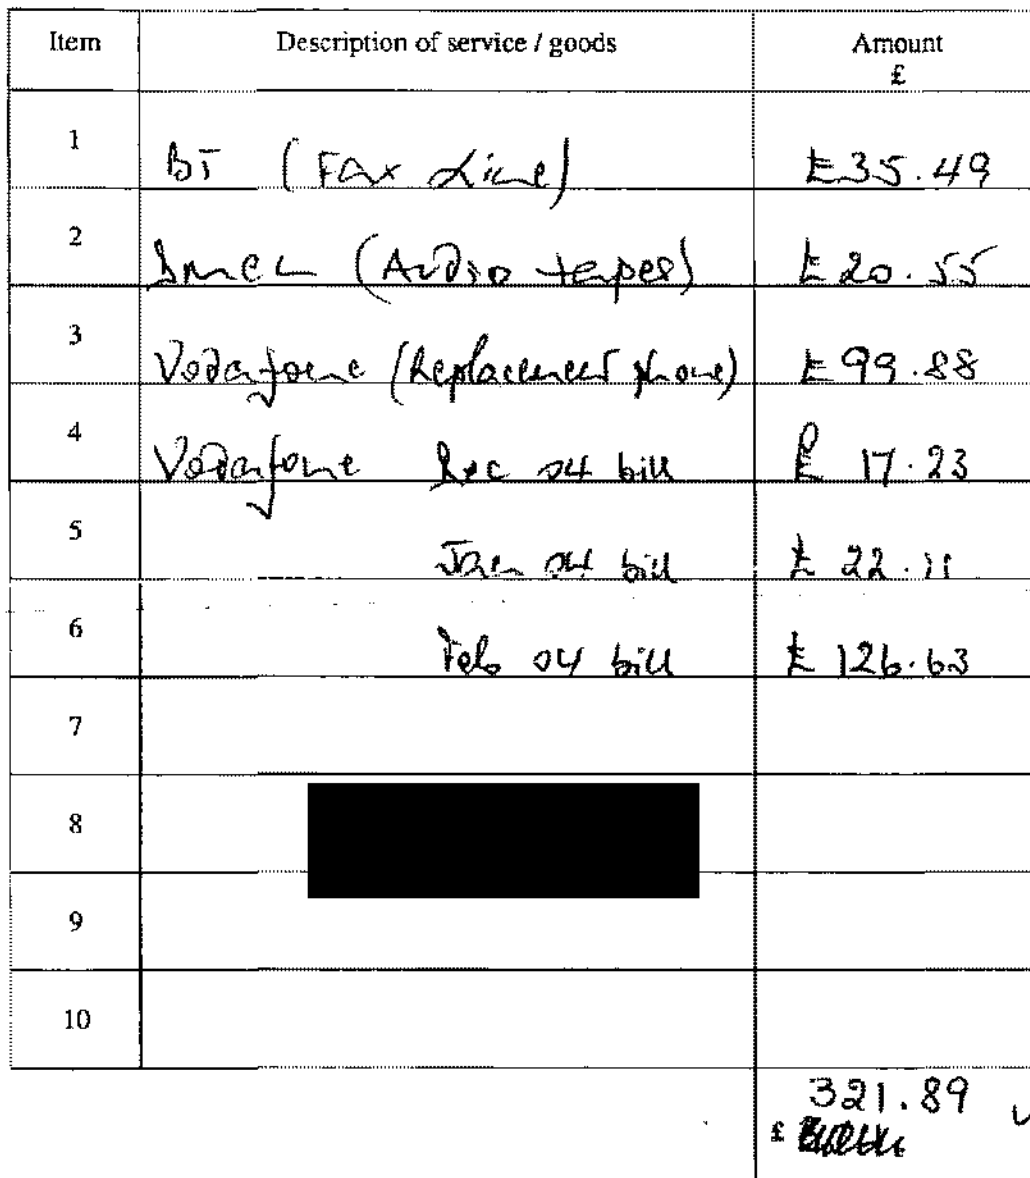 Item Description of service / goods Amount
£
1 BT (Fax Line) £35.49
2 (Audio tapes) £20.55
3 Vodafone (Replacement phone) £99.88
4 Vodafone 04 bill £ 17.23
5 Jan 04 bill £ 22.11
6 Feb 04 bill £ 126.63
7
8
9
10
321.89
£